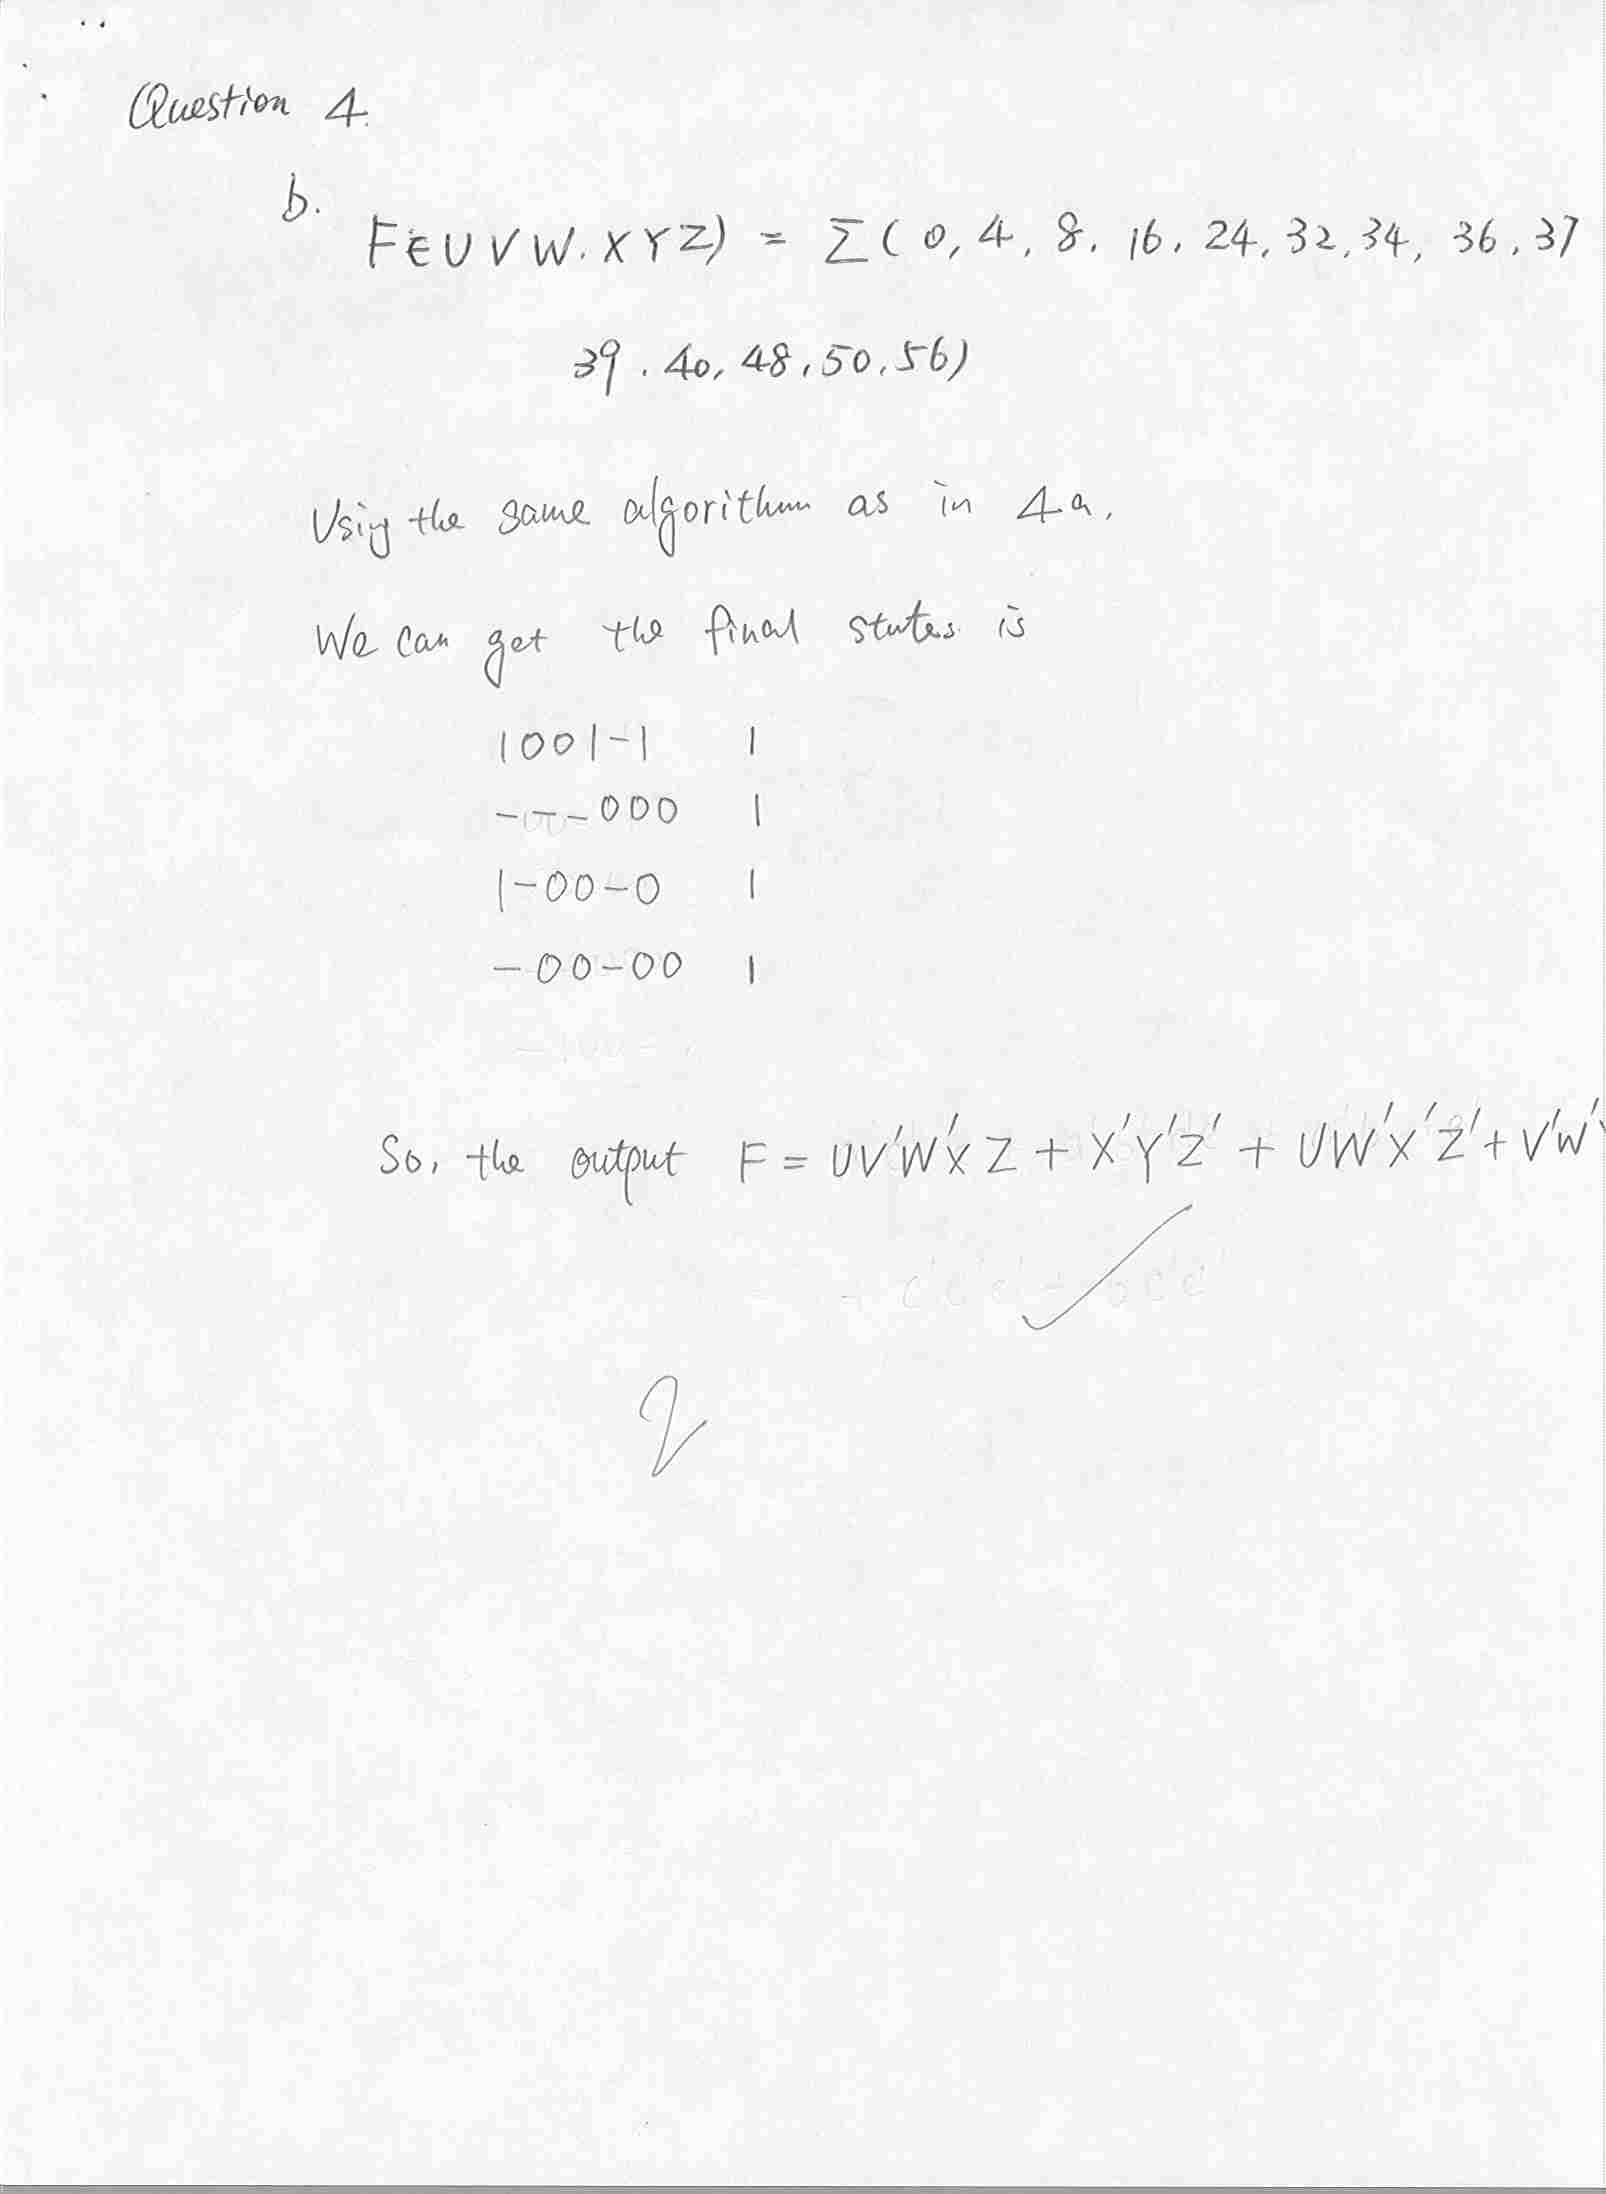 Question 4.
b.
F(UVW.XYZ) = Σ(0, 4, 8. 16, 24, 32, 34, 36, 37
39. 40, 48, 50, 56)
Using the same algorithm as in 4a.
We can get the final states is
1001-1 1
---000 1
1-00-0 1
-00-00 1
So, the output F = UV'W'XZ + X'Y'Z' + UW'X'Z' + V'W'
2